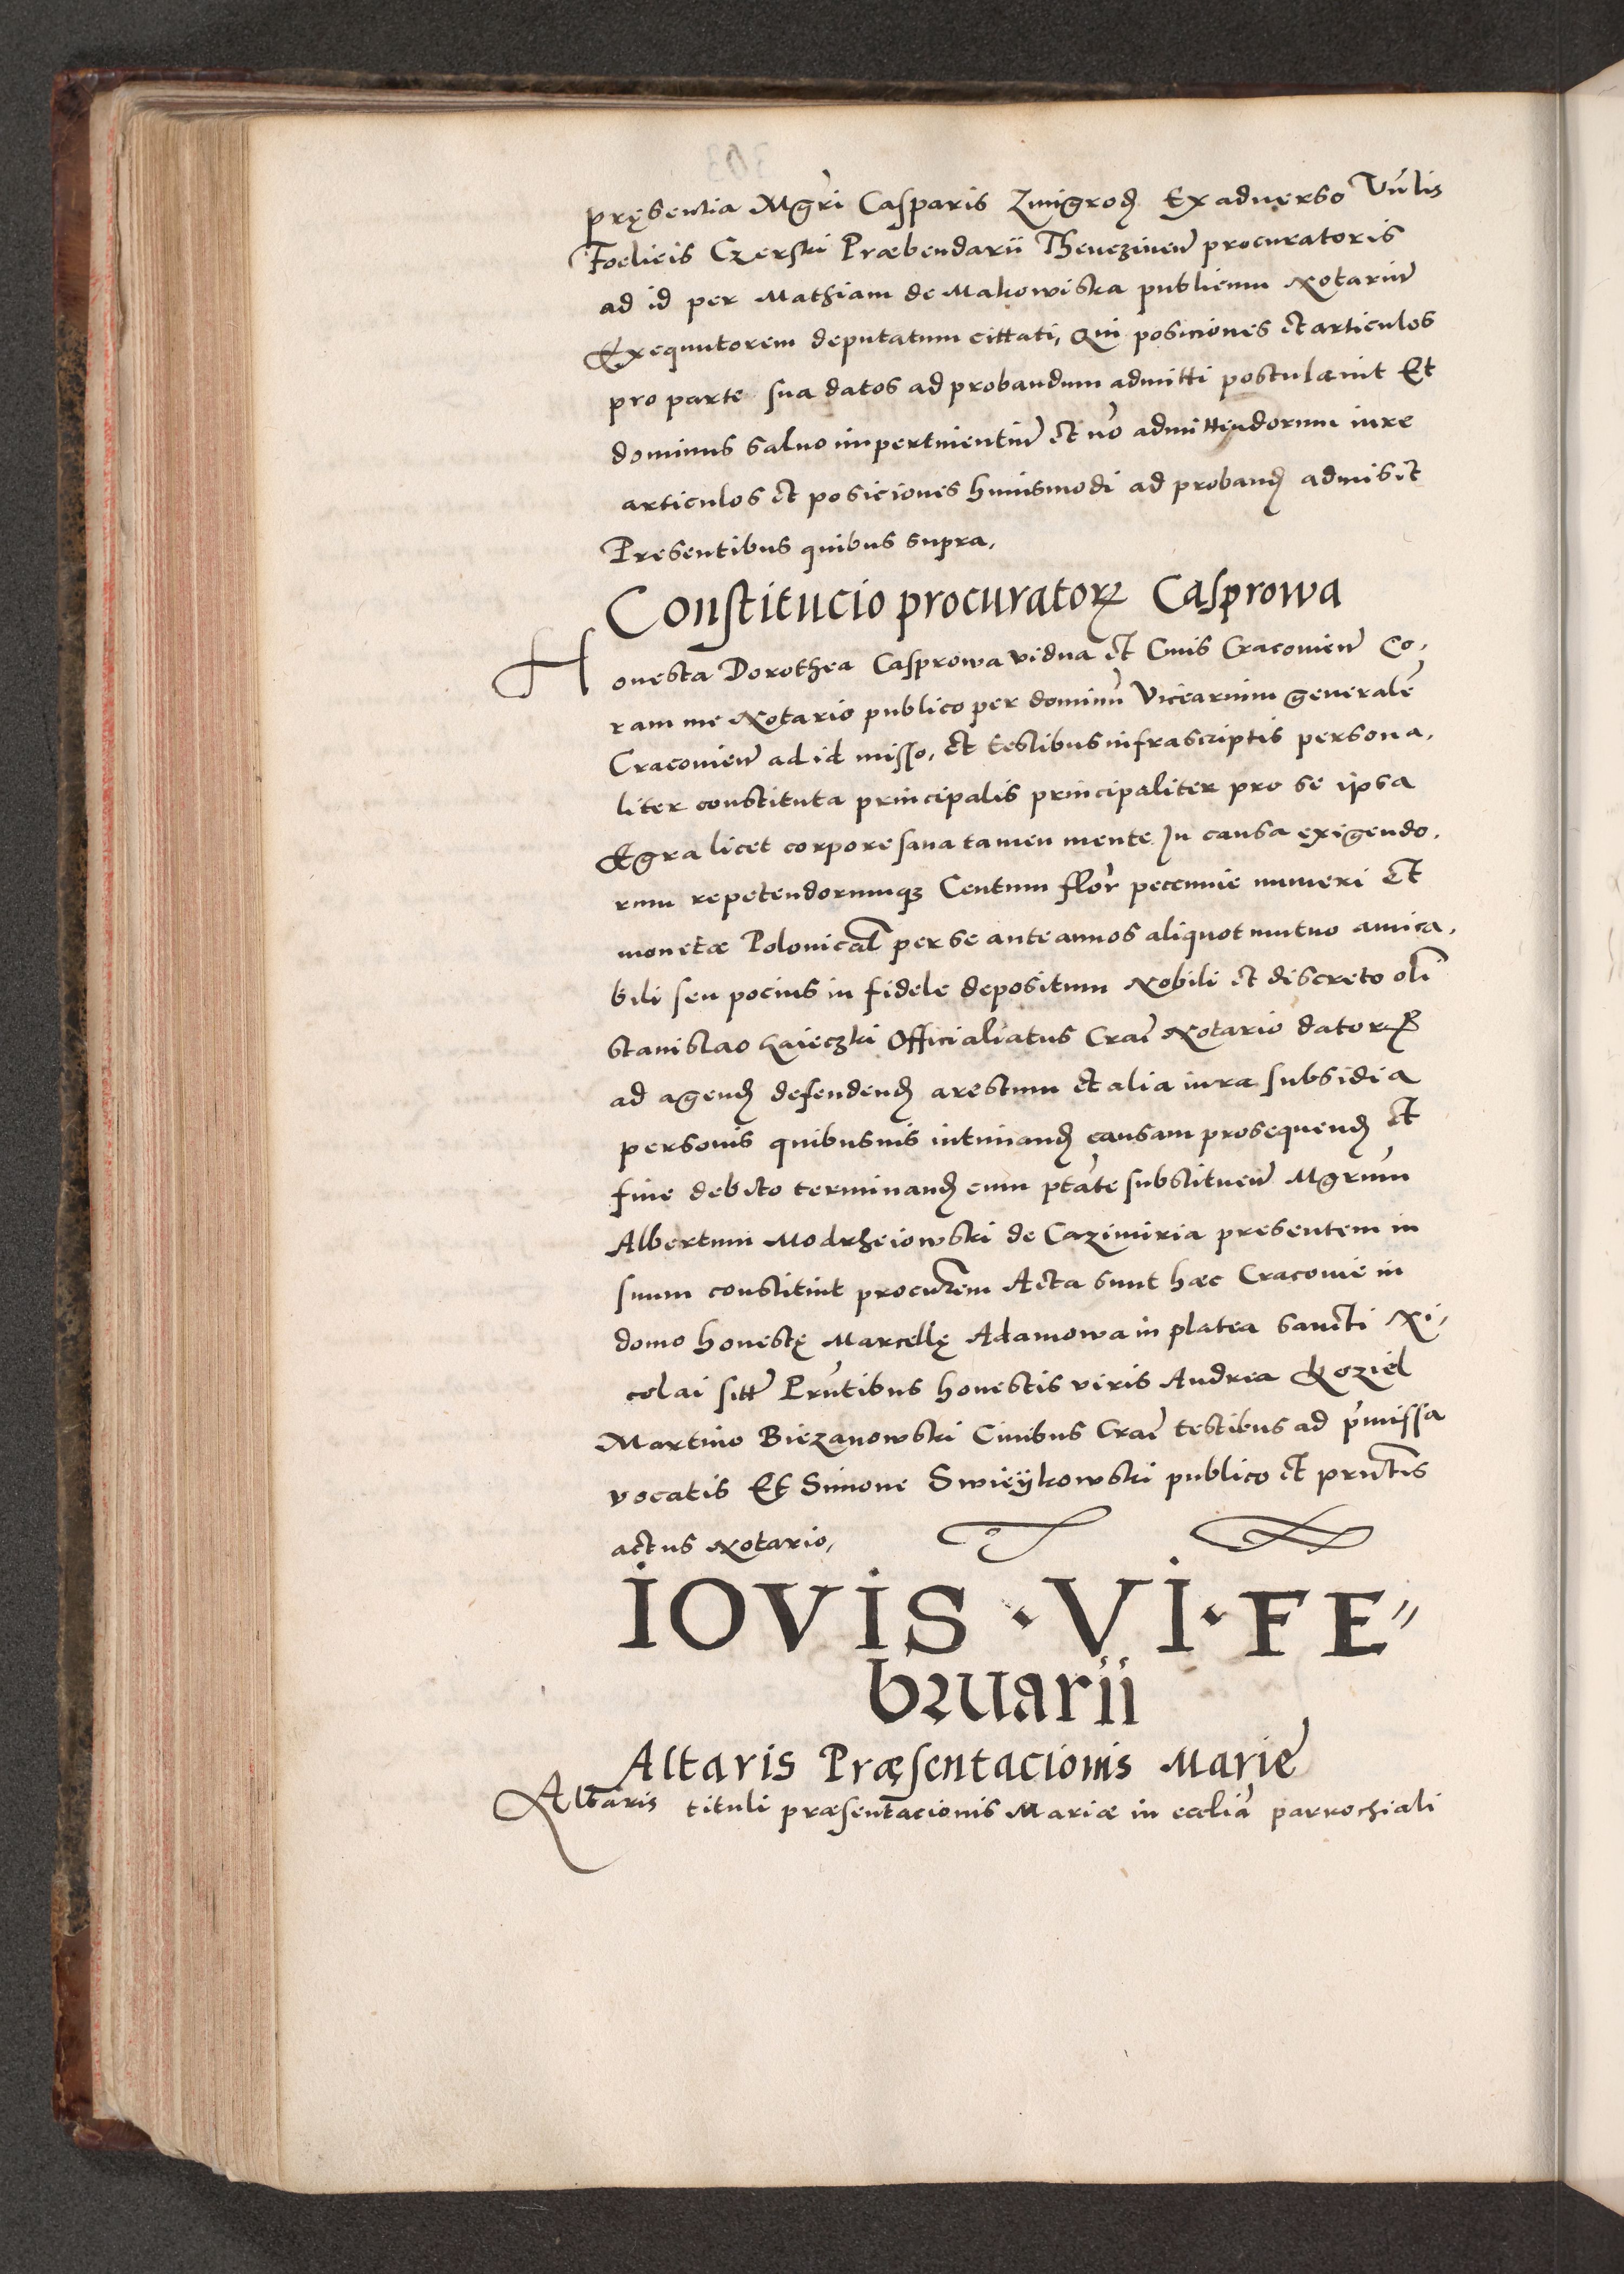 pręsentia Mgri Casparis Zmigrod Ex aduerso Vnlis
Foelicis Czerski Præbendarii Thenezinen procuratoris
ad id per Mathiam de Makowiska publicum Notarium
Exequutorem deputatum cittati, Qui posiciones et articulos
pro parte sua datos ad probandum admitti postulauit Et
dominus saluo impertinentium et no admittendorum iure
articulos et posiciones huiusmodi ad proband admisit
Presentibus quibus supra,
Constitucio procuratoꝝ Casprowa
Honesta Dorothea Casprowa vidua et Ciuis Cracouien Co,
ram me Notario publico per dominu Vicearium generale
Cracouien ad id misso, et testibus infrascriptis persona,
liter constituta principalis principaliter pro se ipsa
Egra licet corpore sana tamen mente In causa exigendo,
rum repetendorumqꝫ Centum flor pecunnie numeri Et
monetæ Polonical per se ante annos aliquot mutuo amica,
bili seu pocius in fidele depositum Nobili et discreto oli
Stanislao Zaieczki Officialiatus Crai Notario datoꝝ
ad agend defendend arestum et alia iura subsidia
personis quibusuis intimand causam prosequend et
fine debito terminand cum ptate substituen Mgrum
Albertum Modrzeiowski de Cazimiria presentem in
suum constituit procurem Acta sunt hæc Cracouie in
domo honestę Marcellę Adamowa in platea Sancti Ni,
colai sitt Prntibus honestis viris Andrea Koziel
Martino Biezanowski Ciuibus Crai testibus ad pmissa
vocatis Et Simone Swieÿkowski publico et prntis
actus Notario,
IOVIS · VI · FE"
bruarii
Altaris Præsentacionis Marie
Altaris tituli præsentacionis Mariæ in ecclia parrochiali